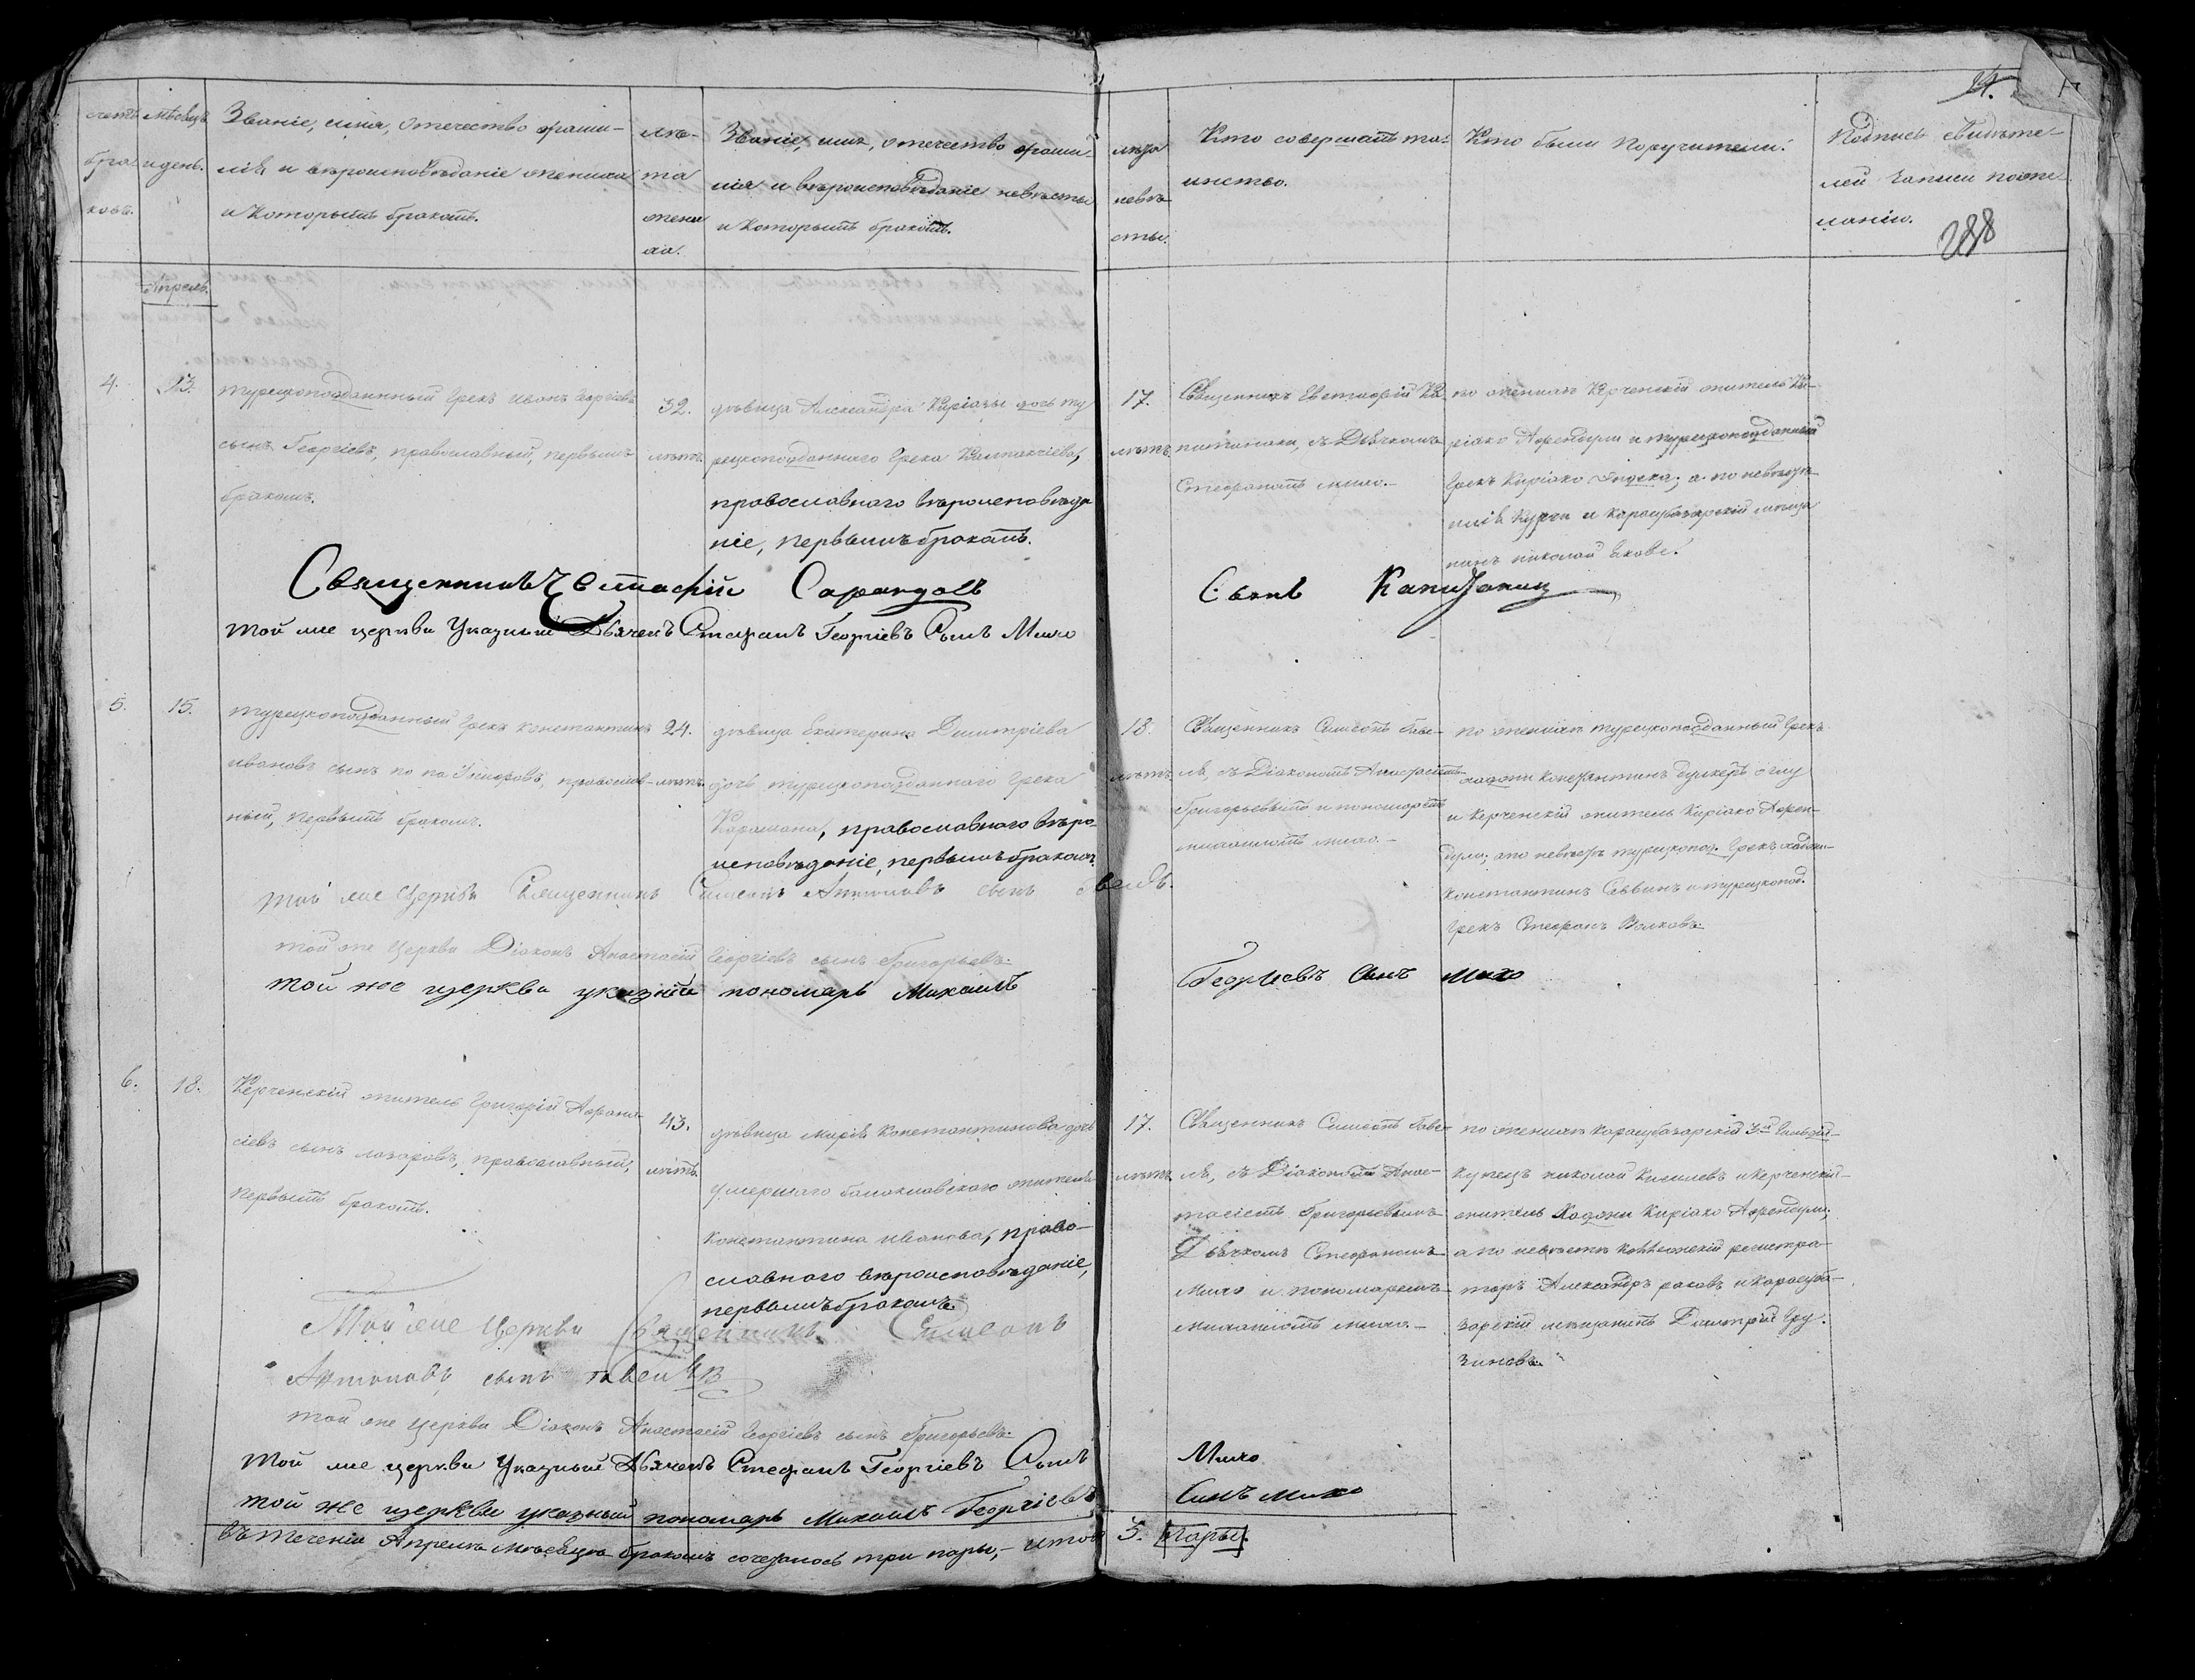 счетъ
бра
ковъ.
мѣсецъ
и день.
Званіе, имя, отечество фами-
лія и вѣроисповѣданіе жениха
и которымъ бракомъ.
лѣ-
та
жени
ха.
Званіе, имя, отечество фами-
лія и вѣроисповѣданіе невѣсты
и которымъ бракомъ.
лѣта
невѣ-
сты.
Кто совершалъ та-
инство.
Кто были поручители.
Подпись свидѣте-
лей записи по же-
ланію.
288
Апрель.
4.
13.
турецкоподданный Грекъ Иванъ Георгіевъ
сынъ Георгіевъ, православный, первымъ
бракомъ.
32.
лѣтъ.
дѣвица Александра Киріазы дочь ту
рецкоподданнаго Грека
православнаго вѣроисповѣда
ніе, первымъ бракомъ.
17.
лѣтъ.
Священникъ Евстафій Ка
питанаки, съ Дьячкомъ
Стефаномъ михо.-
по женихѣ Керченскій житель Ки-
ріако Афендули и турецкоподданный
Грекъ Киріако а по невѣстѣ
и Карасубазарскій мѣща
нинъ николай
Священникъ Евстафій Сарандовъ
Сынъ Капитанаки
той же церкви Указный Дьячекъ Стефанъ Георгіевъ Сынъ Михо
5.
15.
турецкоподданный Грекъ Константинъ
ивановъ сынъ православ-
ный, первымъ бракомъ.
24.
лѣтъ.
дѣвица Екатерина Димитріева
дочь турецкоподданнаго Грека
Карамана, православнаго вѣро-
исповѣданіе, первымъ бракомъ
18.
лѣтъ
Священникъ Симеонъ Гаве-
ля, съ Діакономъ Анастасіемъ
Григорьевымъ и пономаремъ
михаиломъ михо.-
по женихѣ турецкоподданный Грекъ
хаджи Константинъ оглу
и Керченскій житель Киріако Афен-
дули; а по невѣстѣ турецкопод. Грекъ хаджи-
Константинъ Саввинъ и турецкопод.
Грекъ Стефанъ Волковъ
той же Церкви Священникъ Симеонъ Антоновъ сынъ
той же Церкви Діаконъ Анастасій Георгіевъ сынъ Григорьевъ.
той же церкви указній пономарь Михаилъ
Георгіевъ Сынъ михо
6.
18.
Керченскій житель Григорій Афана-
сіевъ сынъ лазаровъ, православный,
первымъ бракомъ.
43.
лѣтъ
дѣвица Марія Константинова дочь
умершаго балаклавскаго жителя
Константина иванова, право-
славного вѣроисповѣданіе,
первымъ бракомъ
17.
лѣтъ
Священникъ Симеонъ Гаве-
ля, съ Діакономъ Анас-
тасіемъ Григорьевымъ
Дьячкомъ Стефаномъ
Михо и пономаремъ
михаиломъ михо.-
по женихѣ Карасубазарскій 3й гильдій-
купецъ николай Киселевъ и Керченскій-
житель Хаджи Киріако Афендули,
а по невѣстѣ Коллежскій регистра-
торъ Александръ и Карасуба-
зарскій мѣщанинъ Димитрій Гру-
зиновъ
Той же Церкви Священникъ Симеонъ
Антоновъ сынъ
той же церкви Діаконъ Анастасій Георгіевъ сынъ Григорьевъ.
той же церкви Указный Дьячекъ Стефанъ Георгіевъ Сынъ
Михо
той же церкви указный пономарь Михаилъ Георгіевъ
Синъ михо
въ теченіи Апреля мѣсяца бракомъ сочеталось три пары,- итого
3. пары.